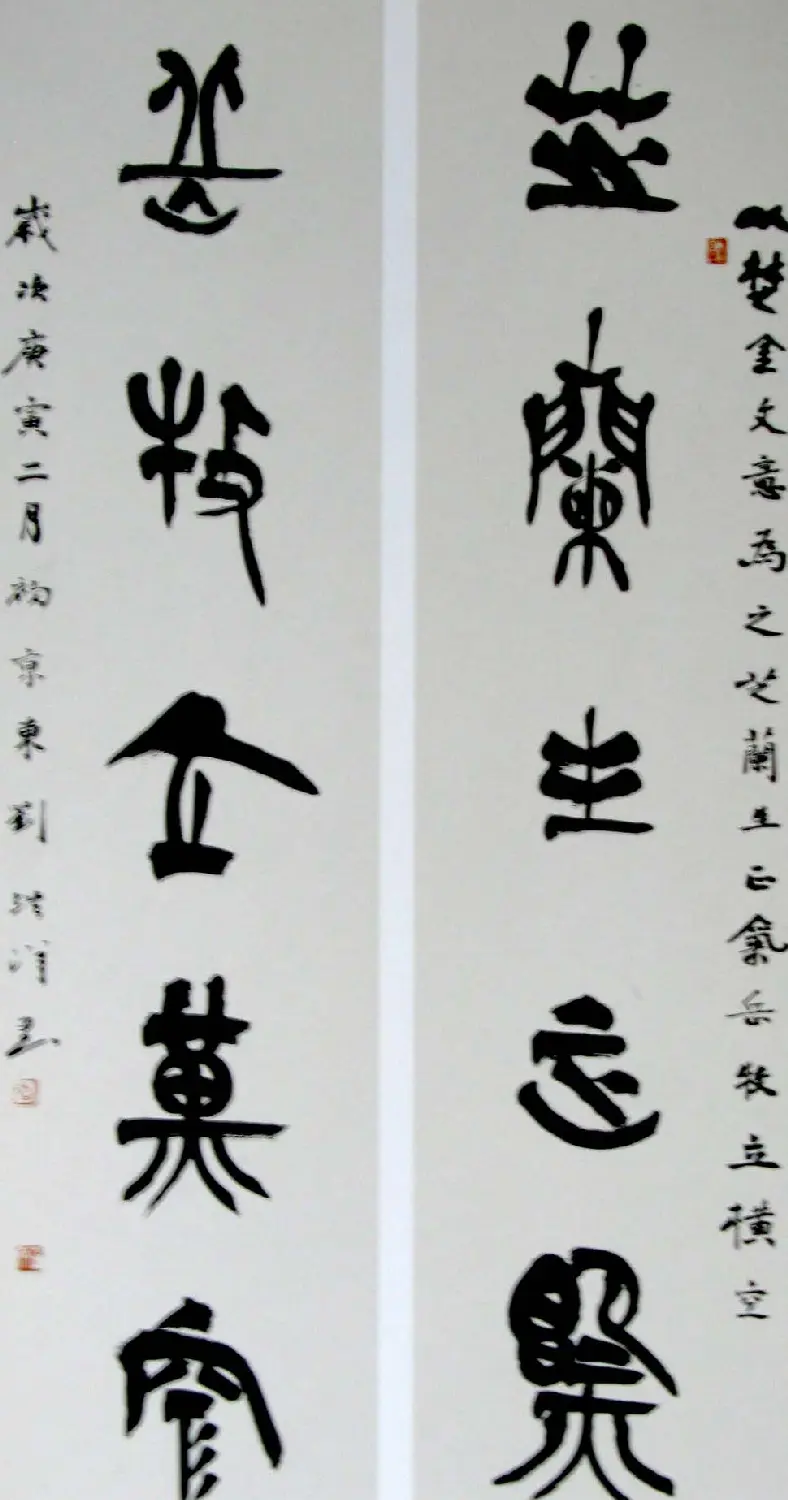 以楚金文意為之芝蘭生正氣岳牧立橫空
芝蘭生正氣
岳牧立橫空
歲次庚寅二月 京東劉